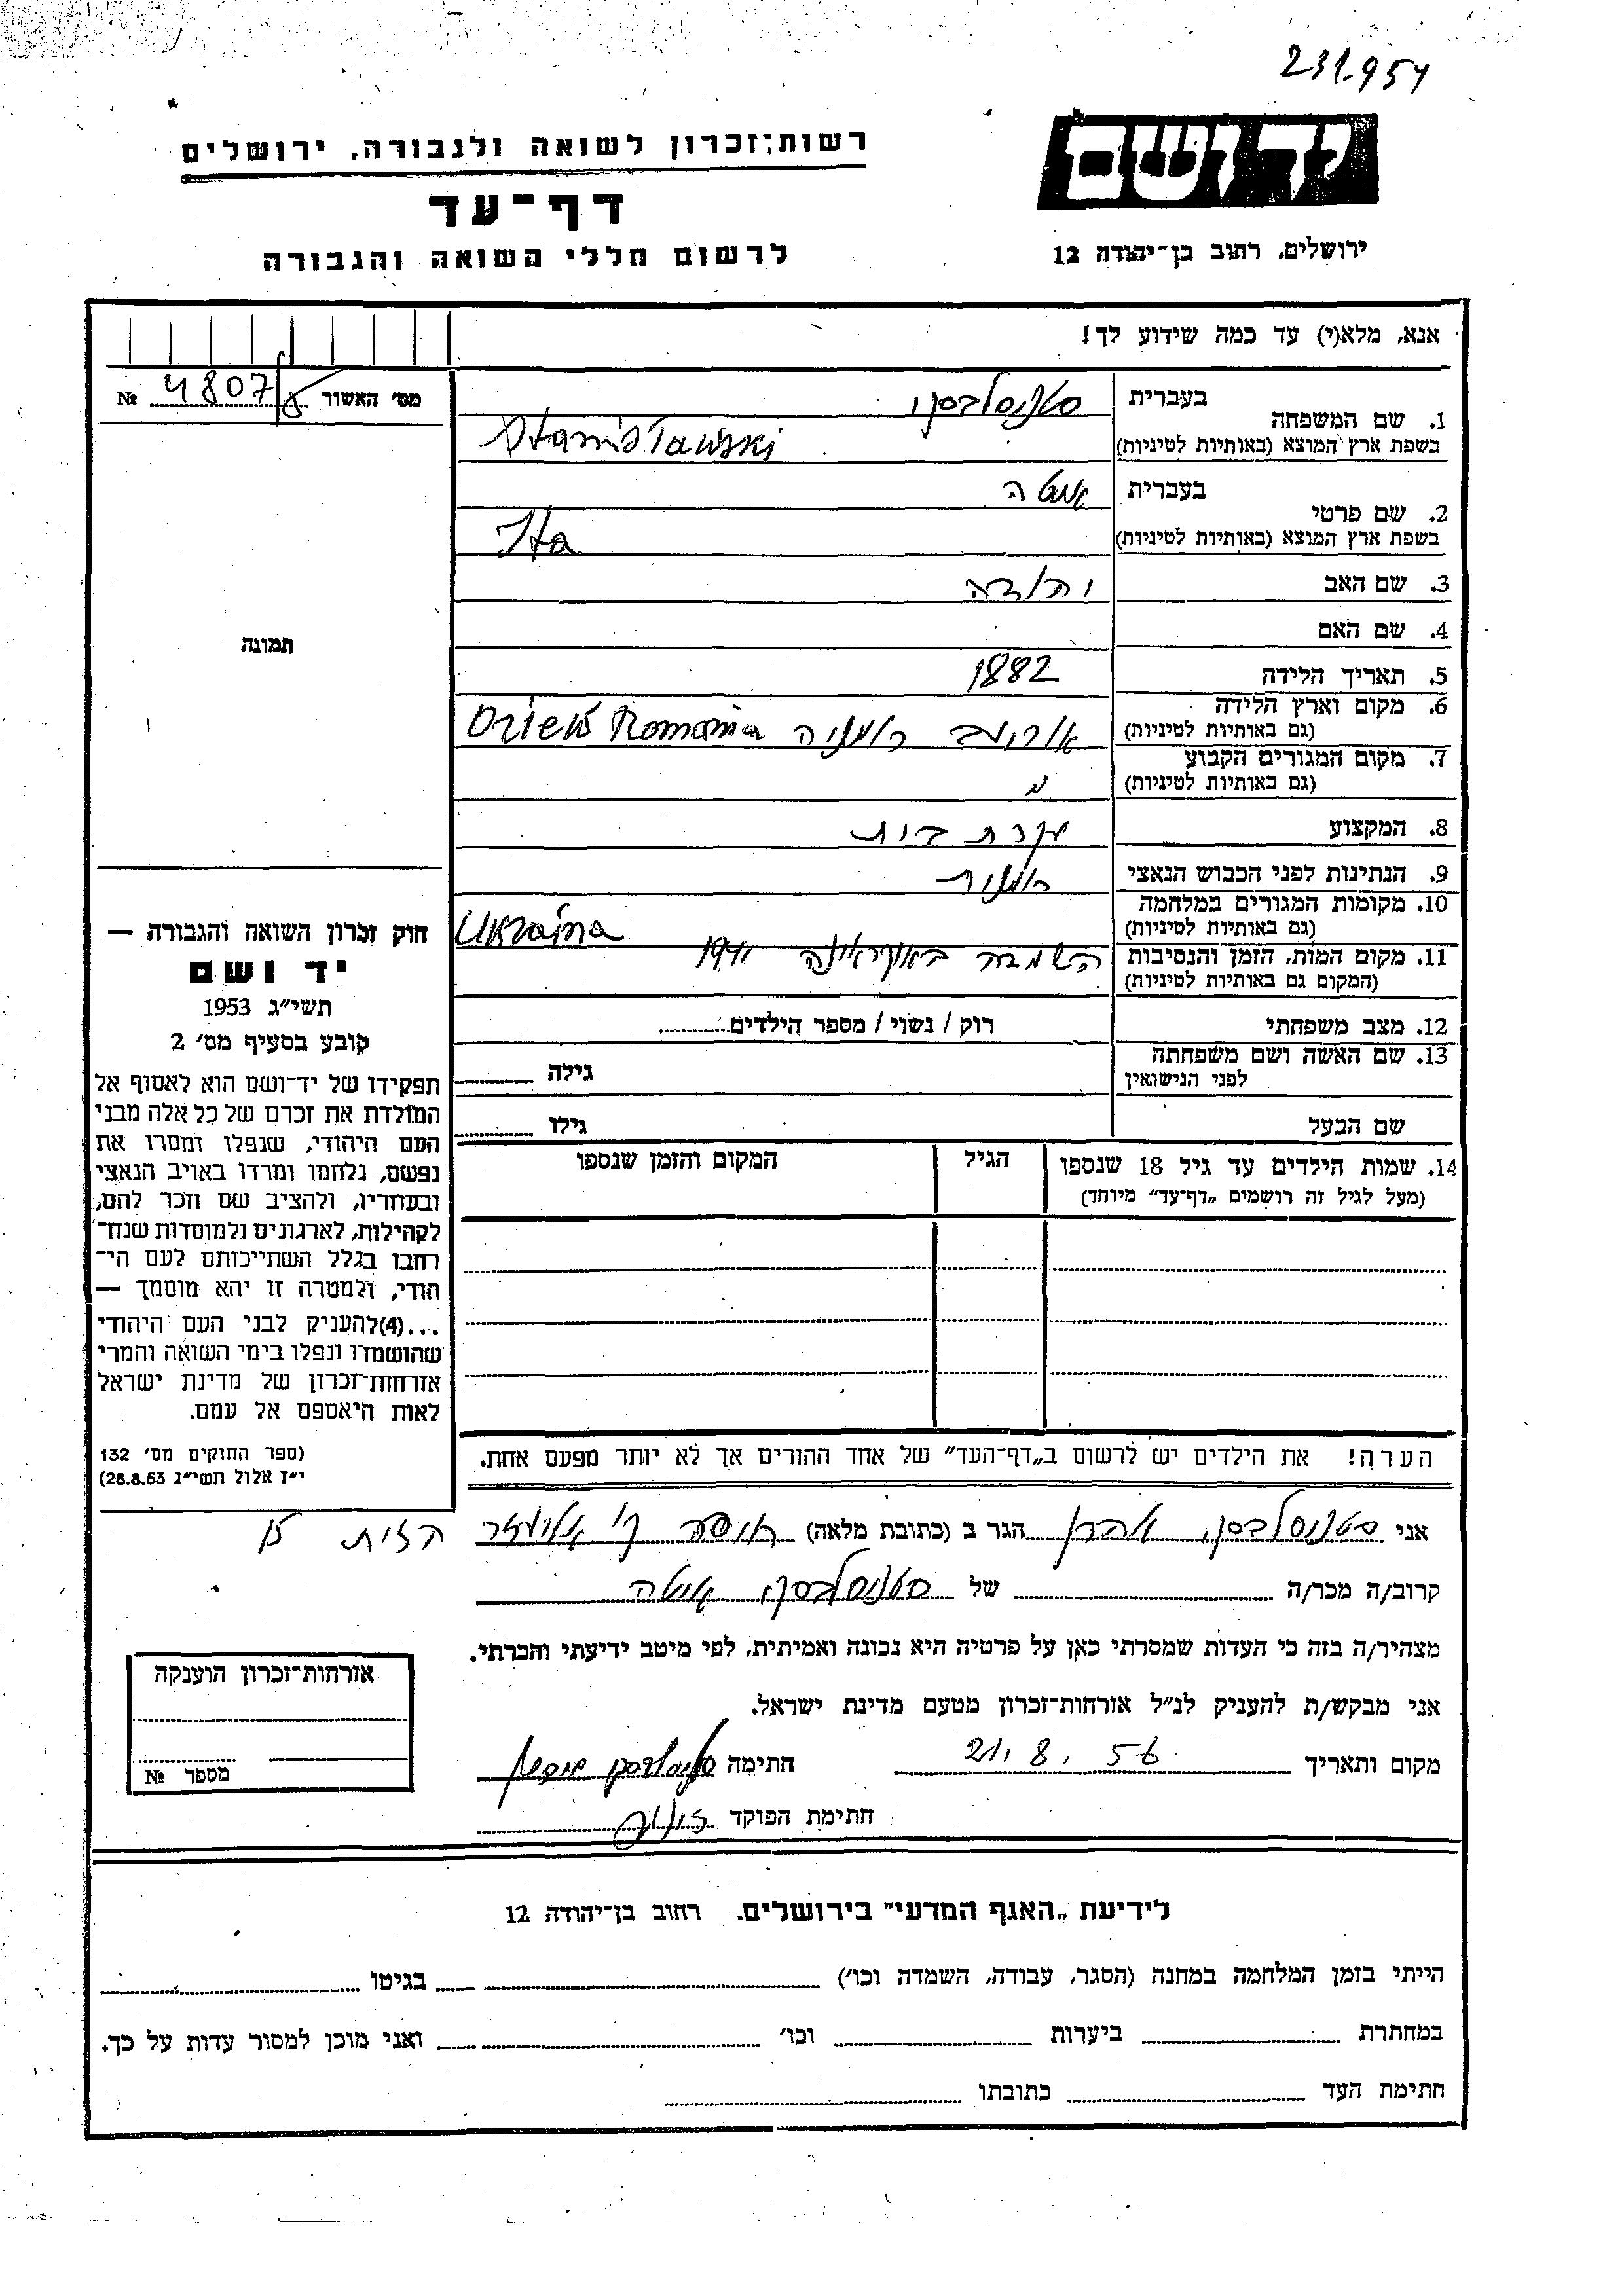 231.954
יד ושם
רשות זכרון לשואה ולגבורה, ירושלים
דף־עד
לרשום חללי השואה והגבורה
ירושלים, רחוב בן־יהודה 12
אנא, מלא(י) עד כמה שידוע לך!
מס׳ האשור № 4807/
1. שם המשפחה בעברית סטניסלבסקי
בשפת ארץ המוצא (באותיות לטיניות) Stanisławski
2. שם פרטי בעברית איטה
בשפת ארץ המוצא (באותיות לטיניות) Ita
3. שם האב יהודה
4. שם האם
5. תאריך הלידה 1882
6. מקום וארץ הלידה רומניה Romania
(גם באותיות לטיניות)
7. מקום המגורים הקבוע "
(גם באותיות לטיניות)
8. המקצוע עקרת בית
9. הנתינות לפני הכבוש הנאצי רומנית
10. מקומות המגורים במלחמה Ukraina
(גם באותיות לטיניות)
11. מקום המות, הזמן והנסיבות השמדה באוקראינה 1941
(המקום גם באותיות לטיניות)
12. מצב משפחתי רוק / נשוי / מספר הילדים
13. שם האשה ושם משפחתה לפני הנישואין גילה
שם הבעל גילו
14. שמות הילדים עד גיל 18 שנספו הגיל המקום והזמן שנספו
(מעל לגיל זה רושמים „דף־עד" מיוחד)
תמונה
חוק זכרון השואה והגבורה —
יד ושם
תשי״ג 1953
קובע בסעיף מס׳ 2
תפקידו של יד־ושם הוא לאסוף אל
המולדת את זכרם של כל אלה מבני
העם היהודי, שנפלו ומסרו את
נפשם, נלחמו ומרדו באויב הנאצי
ובעוזריו, ולהציב שם וזכר להם,
לקהילות, לארגונים ולמוסדות שנח־
רבו בגלל השתייכותם לעם הי־
הודי, ולמטרה זו יהא מוסמך —
...(4)להעניק לבני העם היהודי
שהושמדו ונפלו בימי השואה והמרי
אזרחות־זכרון של מדינת ישראל
לאות היאספם אל עמם.
(ספר החוקים מס׳ 132
י״ז אלול תשי״ג 28.8.53)
הערה! את הילדים יש לרשום ב„דף־העד" של אחד ההורים אך לא יותר מפעם אחת.
אני סטניסלבסקי אהרן הגר ב (כתובת מלאה) חיפה ק׳ אליעזר הזית
קרוב/ה מכר/ה של סטניסלבסקי איטה
מצהיר/ה בזה כי העדות שמסרתי כאן על פרטיה היא נכונה ואמיתית, לפי מיטב ידיעתי והכרתי.
אני מבקש/ת להעניק לנ״ל אזרחות־זכרון מטעם מדינת ישראל.
מקום ותאריך 21.8.56 חתימה
חתימת הפוקד
אזרחות־זכרון הוענקה
מספר №
לידיעת „האגף המדעי" בירושלים. רחוב בן־יהודה 12
הייתי בזמן המלחמה במחנה (הסגר, עבודה, השמדה וכו׳) בגיטו
במחתרת ביערות וכו׳ ואני מוכן למסור עדות על כך.
חתימת העד כתובתו